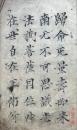 歸命无量壽如来
南无不可思議光
法蔵菩薩因位時
在世自在王佛所